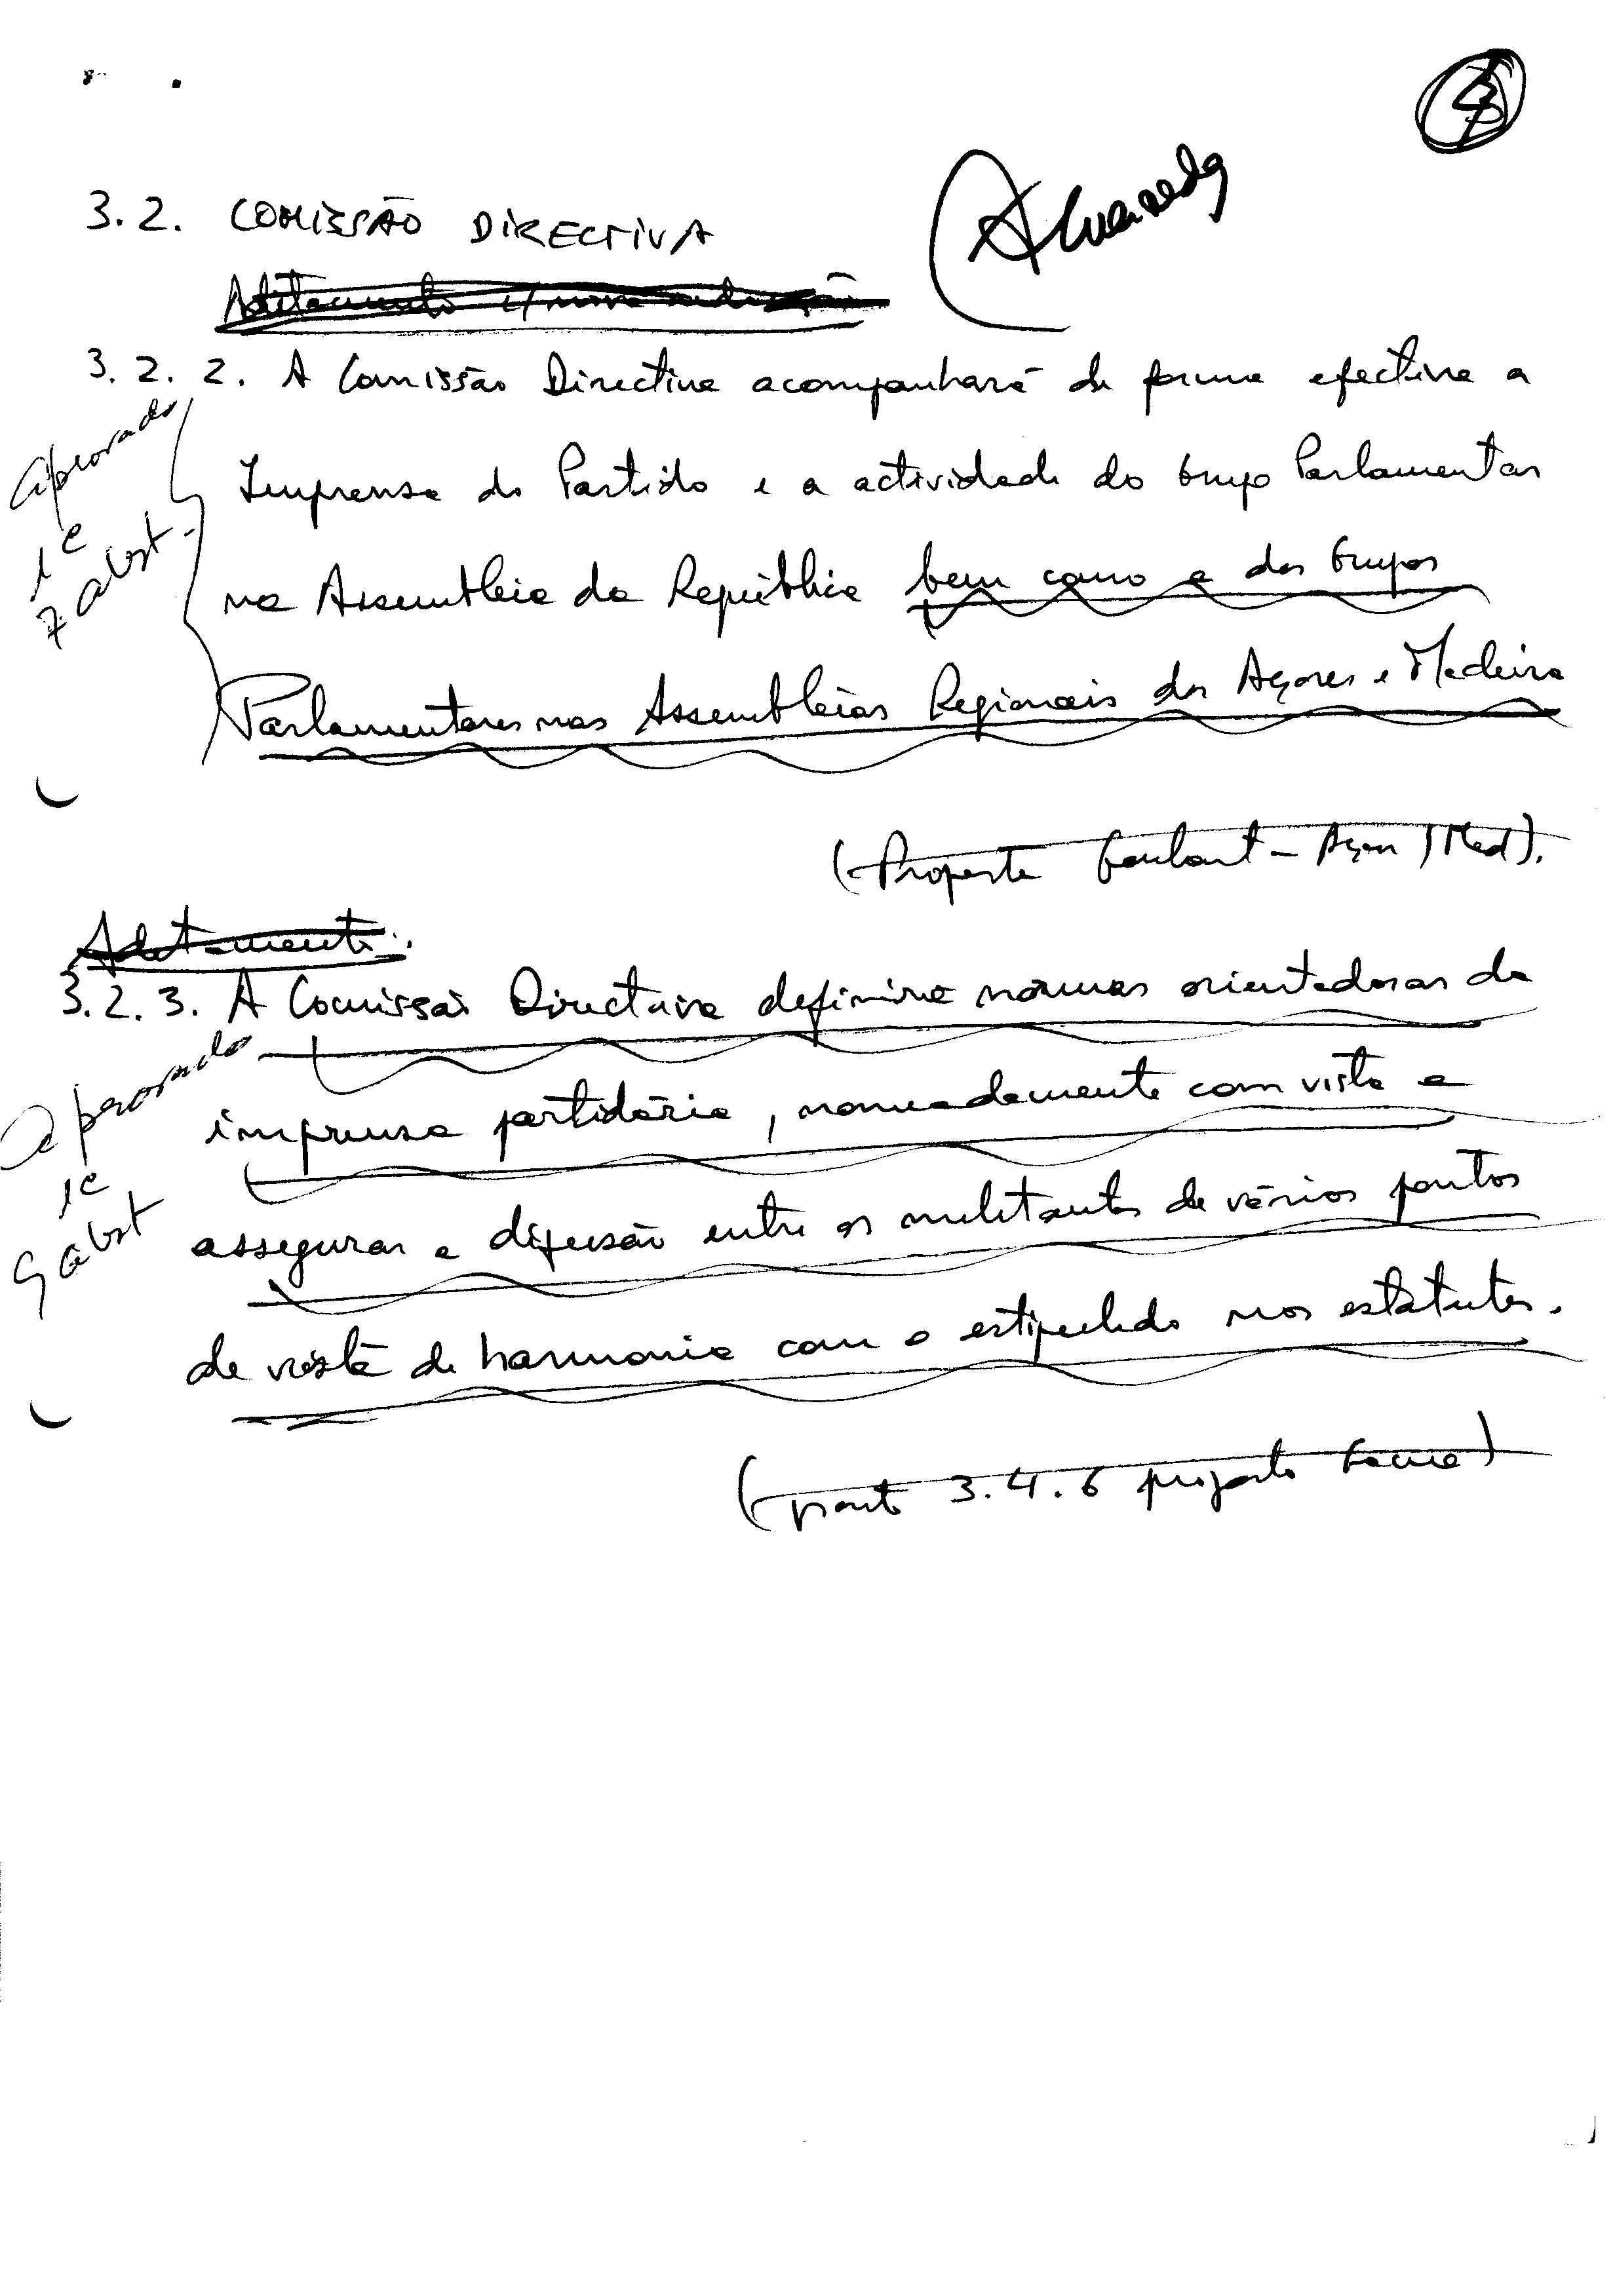 3.2. COMISSÃO DIRECTIVA
Aditamento c/ nova redacção
3.2.2. A Comissão Directiva acompanhará de forma efectiva a
aprovado
1 c
7 abst.
Imprensa do Partido e a actividade do Grupo Parlamentar
na Assembleia da República bem como a dos Grupos
Parlamentares nas Assembleias Regionais dos Açores e Madeira
(Proposta Goulart - Açores / Mad).
Aditamento:
3.2.3. A Comissão Directiva definirá normas orientadoras da
aprovado
1 c
9 abst
imprensa partidária, nomeadamente com vista a
assegurar a difusão entre os militantes de vários pontos
de vista de harmonia com o estipulado nos estatutos.
(ponto 3.4.6 projecto Gama)